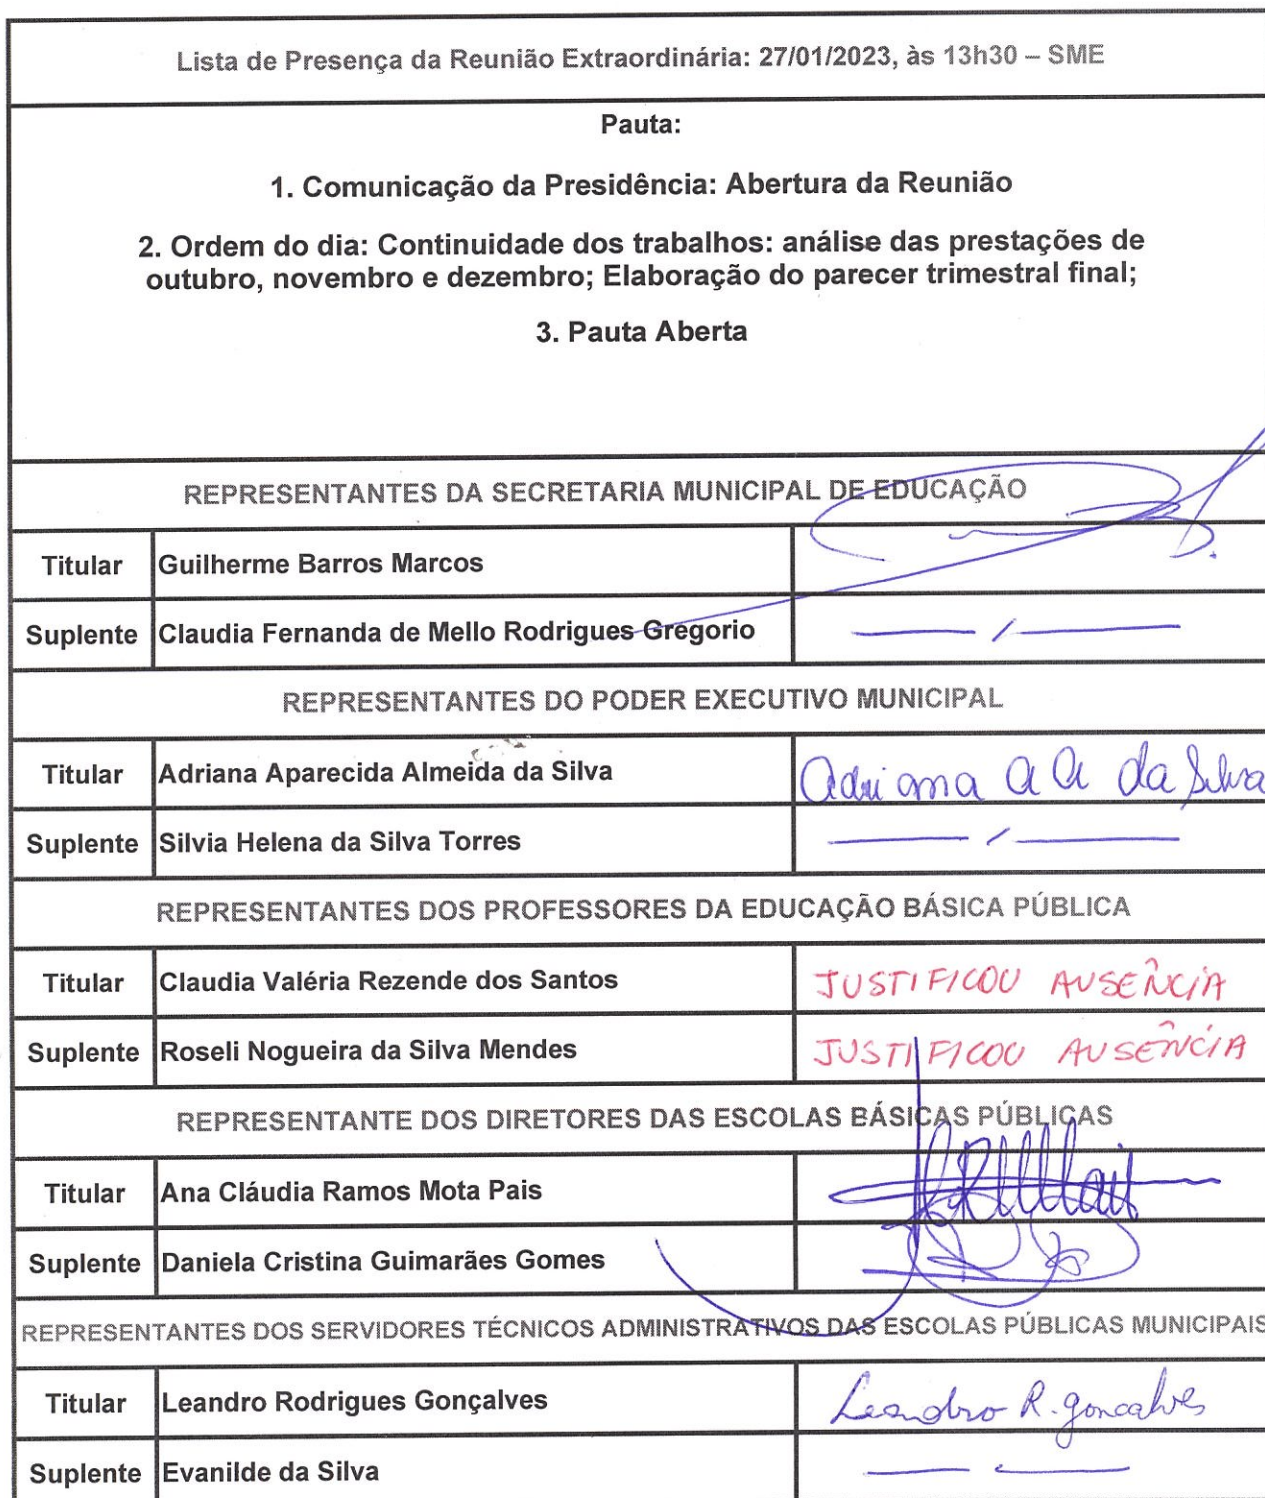 Lista de Presença da Reunião Extraordinária: 27/01/2023, às 13h30 – SME
Pauta:
1. Comunicação da Presidência: Abertura da Reunião
2. Ordem do dia: Continuidade dos trabalhos: análise das prestações de
outubro, novembro e dezembro; Elaboração do parecer trimestral final;
3. Pauta Aberta
REPRESENTANTES DA SECRETARIA MUNICIPAL DE EDUCAÇÃO
Titular Guilherme Barros Marcos
Suplente Claudia Fernanda de Mello Rodrigues Gregorio
REPRESENTANTES DO PODER EXECUTIVO MUNICIPAL
Titular Adriana Aparecida Almeida da Silva Adriana A A da Silva
Suplente Silvia Helena da Silva Torres
REPRESENTANTES DOS PROFESSORES DA EDUCAÇÃO BÁSICA PÚBLICA
Titular Claudia Valéria Rezende dos Santos JUSTIFICOU AUSÊNCIA
Suplente Roseli Nogueira da Silva Mendes JUSTIFICOU AUSÊNCIA
REPRESENTANTE DOS DIRETORES DAS ESCOLAS BÁSICAS PÚBLICAS
Titular Ana Cláudia Ramos Mota Pais
Suplente Daniela Cristina Guimarães Gomes
REPRESENTANTES DOS SERVIDORES TÉCNICOS ADMINISTRATIVOS DAS ESCOLAS PÚBLICAS MUNICIPAIS
Titular Leandro Rodrigues Gonçalves Leandro R. Goncalves
Suplente Evanilde da Silva